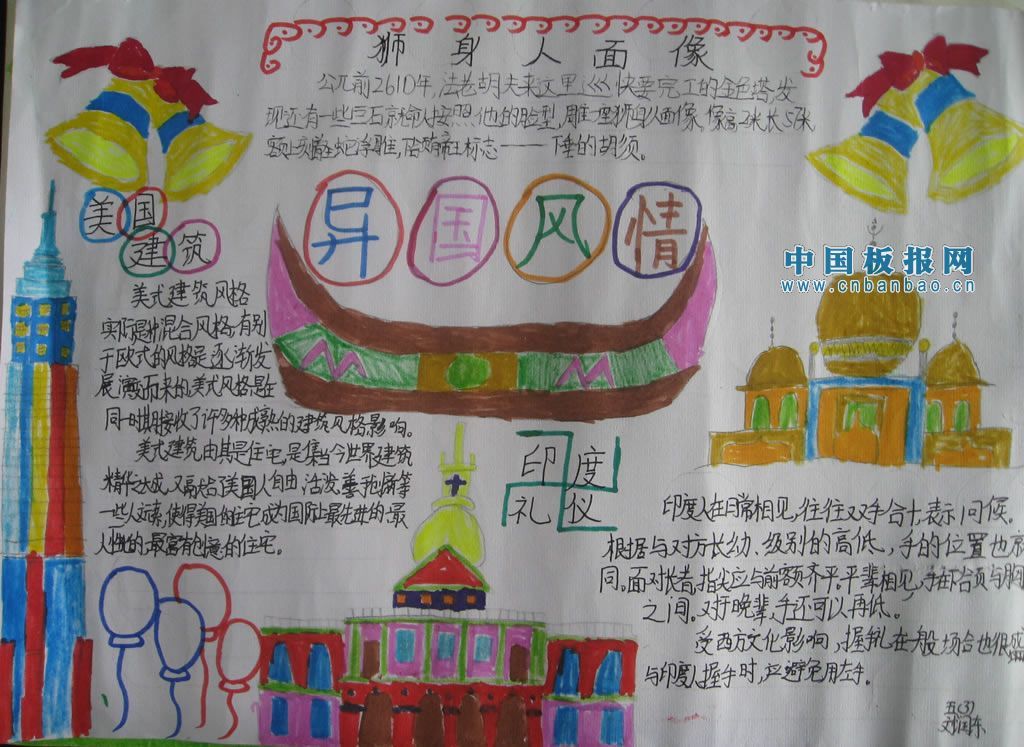 狮身人面像
公元前2610年,法老胡夫来这里巡 快要完工的金色塔,发
现还有一些巨石 按照他的脸型,雕 狮身人面像,像高 米长57米
标志——下垂的胡须。
异国风情
中国板报网
www.cnbanbao.cn
美国
建筑
美式建筑风格
实际是种混合风格,有别
于欧式的风格是逐渐发
展演变而来的美式风格是在
同一时期接收了许多种成熟的建筑风格影响。
美式建筑由其是住宅,是集当今世界建筑
精华大成,又融合了美国人自由、活发、善于创新等
一些人文元素,使得美国住宅成为国际上最先进的、最
人性的、最富有创意的住宅。
印度
礼仪
印度人在日常相见,往往双手合十,表示问候。
根据与对方长幼、级别的高低,手的位置也
同。面对长者,指尖应与前额齐平。平辈相见,手在 与胸
之间。对于晚辈,手还可以再低。
受西方文化影响,握礼在一般场合也很
与印度人握手时,应避免用左手。
五(3)